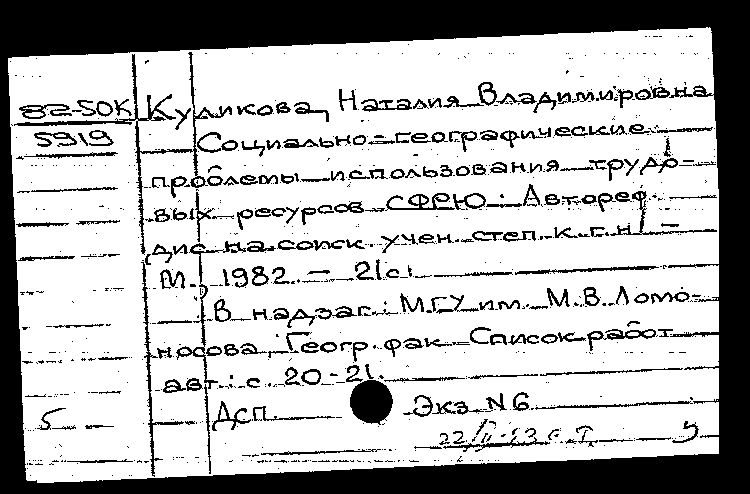 82-50К Куликова, Наталия Владимировна
5919 Социально-географические
проблемы использования трудо-
вых ресурсов СФРЮ: Автореф.
дис. на соиск. учен. степ. к. г. н. -
М., 1982. - 21 с.
В надзаг.: МГУ им. М.В. Ломо-
носова, Геогр. фак. Список работ
авт.: с. 20-21.
5 Дсп. Экз N6